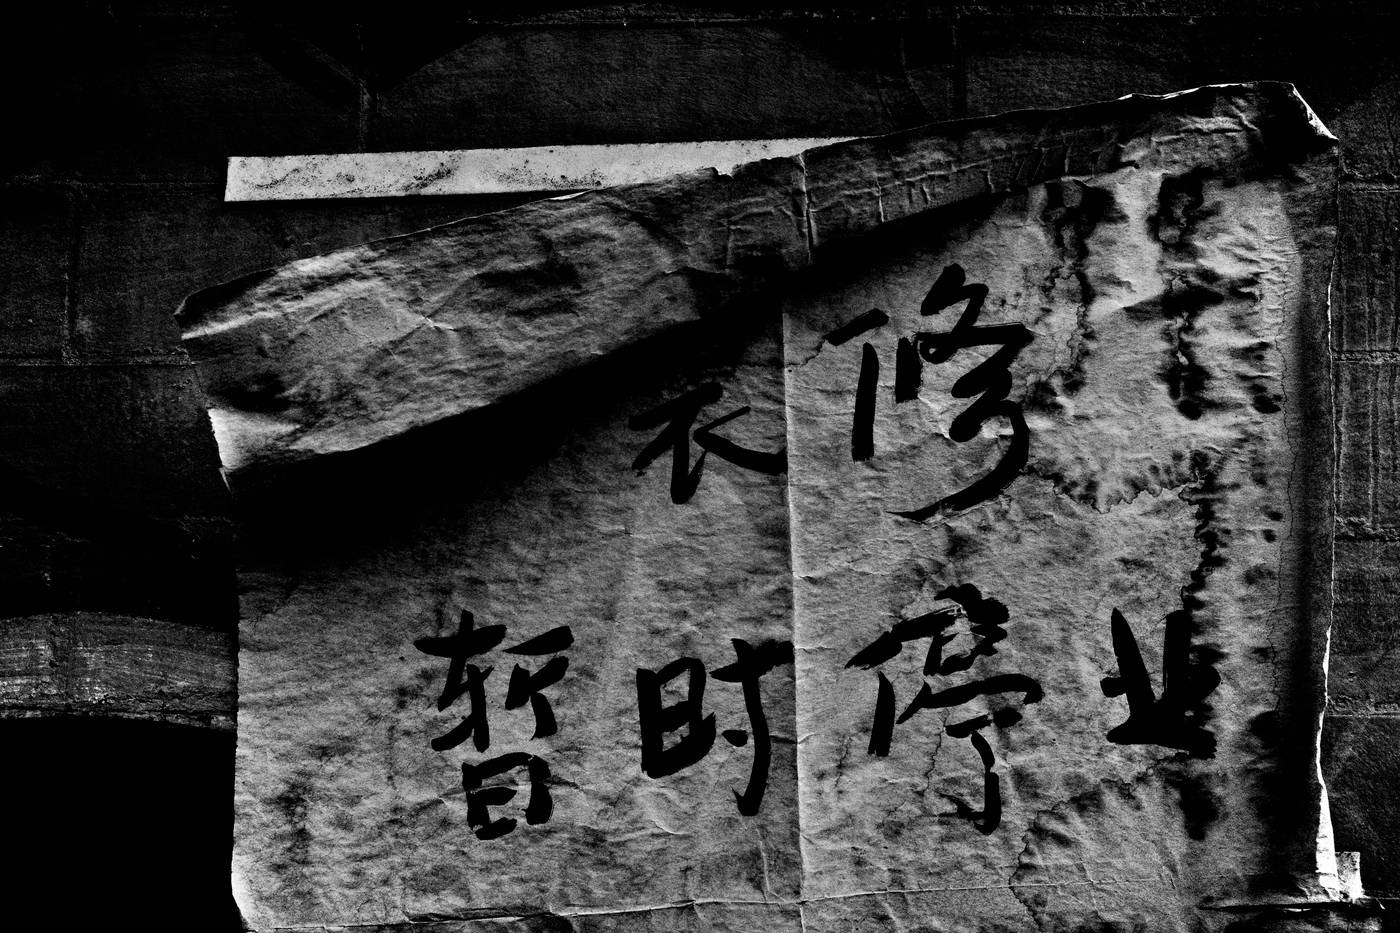 修
暂时停业